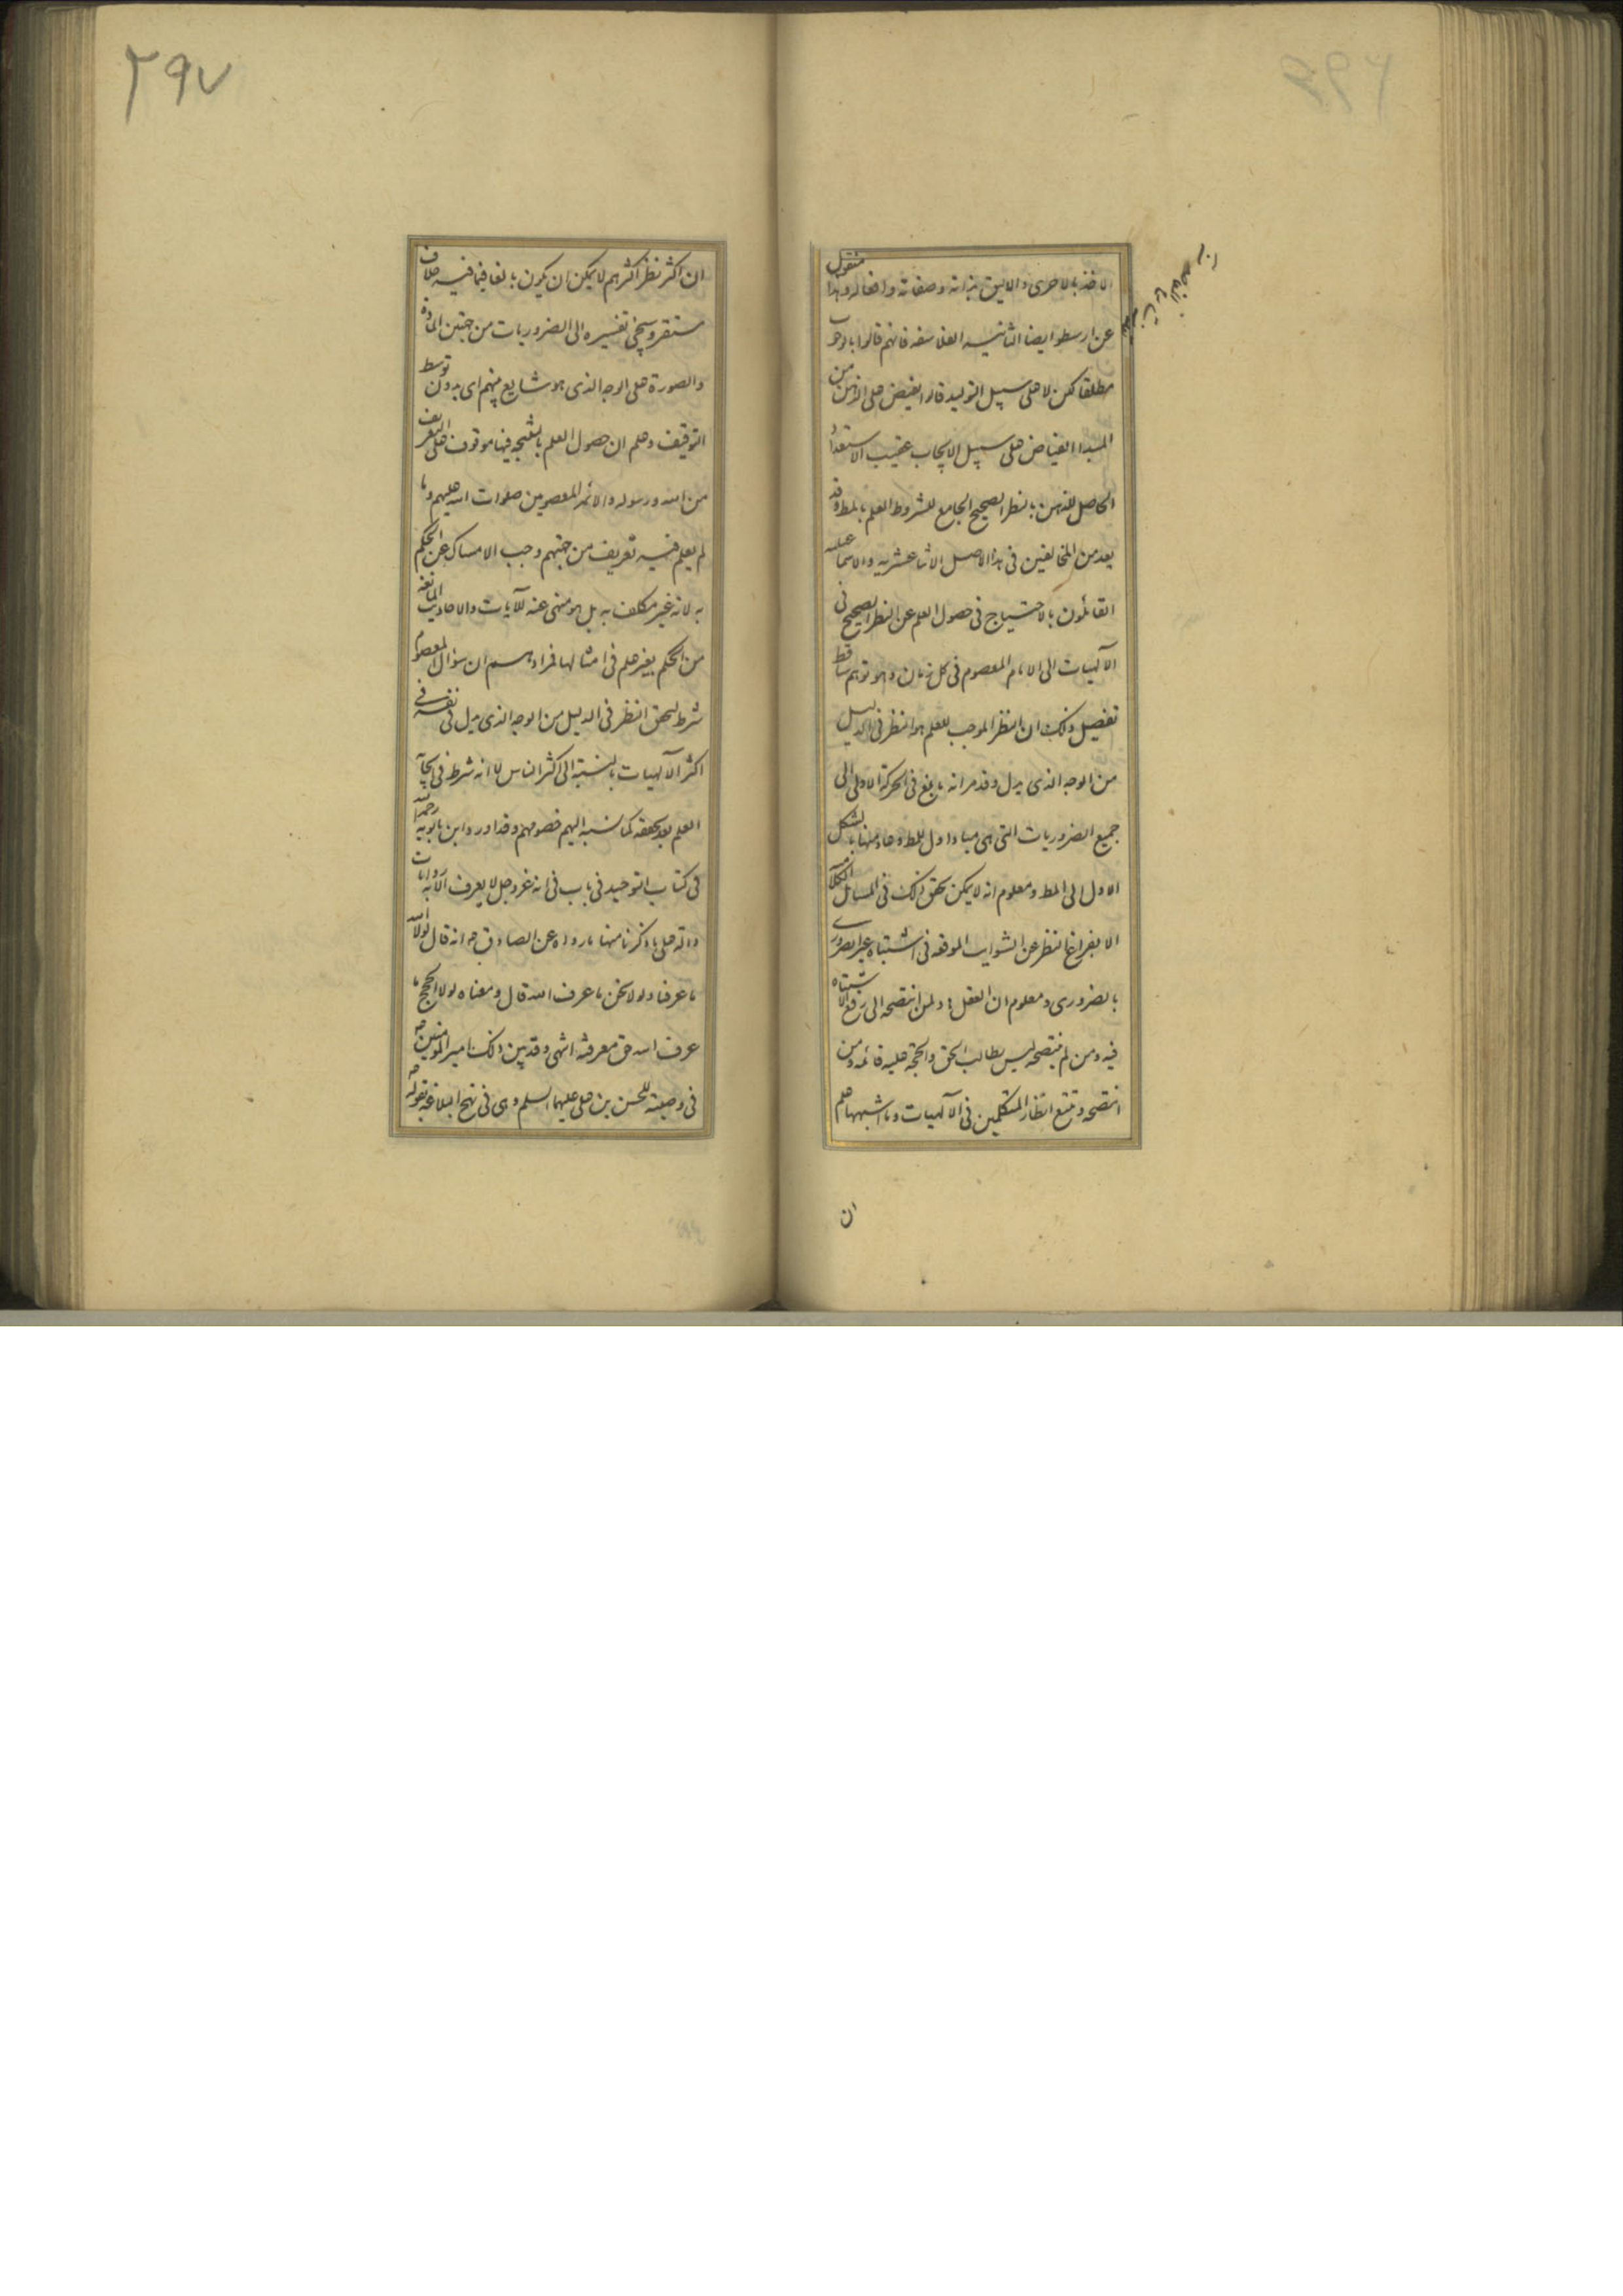 الاخذ بالاحرى والاليق بذاته وصفاته وافعاله وهذا منقول
عن ارسطو ايضا الثانية الفلاسفة فانهم قالوا بالوجوب
مطلقا لكن لا على سبيل التوليد قالوا يفيض على الذهن من
المبدا الفياض على سبيل الايجاب عقيب الاستعداد
الحاصل للذهن بالنظر الصحيح الجامع للشروط العلم بالمط وقد
يعد من المخالفين فى هذا الاصل الاثنا عشرية والاسماعيلية
القائلون بالاحتياج فى حصول العلم عن النظر الصحيح فى
الآلهيات الى الامام المعصوم فى كل زمان وهو توهم ساقط
تفصيل ذلك ان النظر الموجب للعلم هو النظر فى الدليل
من الوجه الذى يدل وقد مر انه بالغ فى الحركة الاولى الى
جميع الضروريات التى هى مباد اول للمط وعاد منها بالشكل
الاول الى المط ومعلوم انه لا يمكن تحقق ذلك فى المسائل
الا بفراغ النظر عن الشوايب الموقعه فى اشتباه غير الضرورى
بالضرورى ومعلوم ان العقل ولمن انتصحه الى رفع الاشتباه
فيه ومن لم ينتصحه ليس بطالب الحق والحجة عليه قائمه ومن
انتصحه وتتبع انظار المتكلمين فى الآلهيات وما اشبهها علم
ان
٢٩٧
ان اكثر نظر اكثرهم لا يمكن ان يكون بالغا فيما فيه خلاف
مستقر وسيجئ تفسيره الى الضروريات من جهتين المادة
والصورة على الوجه الذى هو شايع منهم اى بدون توسط
التوقيف وعلم ان حصول العلم بالنتيجه فيها موقوف على التعريف
من الله ورسوله والائمة المعصومين صلوات الله عليهم وما
لم يعلم فيه تعريف من جهتهم وجب الامساك عن الحكم
به لانه غير مكلف به بل هو منهى عنه للآيات والاحاديث المانعة
من الحكم بغير علم فى امثالها فمرادهم ان سؤال المعصوم
شرط لتحقق النظر فى الدليل من الوجه الذى يدل فى نفسه فى
اكثر الآلهيات بالنسبة الى اكثر الناس لا انه شرط فى ايجاب
العلم بعد تحققه كما نسبه اليهم خصومهم وقد اورد ابن بابويه رحمه الله
فى كتاب التوحيد فى باب فى انه عز وجل لا يعرف الا به روايات
دالة على ما ذكرنا منها ما رواه عن الصادق ع انه قال لولا الله
ما عرفنا ولولا نحن ما عرف الله قال ومعناه لولا الحجج ما
عرف الله حق معرفته انتهى وقد بين ذلك امير المؤمنين ع
فى وصيته للحسن بن على عليهما السلم وهى فى نهج البلاغه بقوله ع